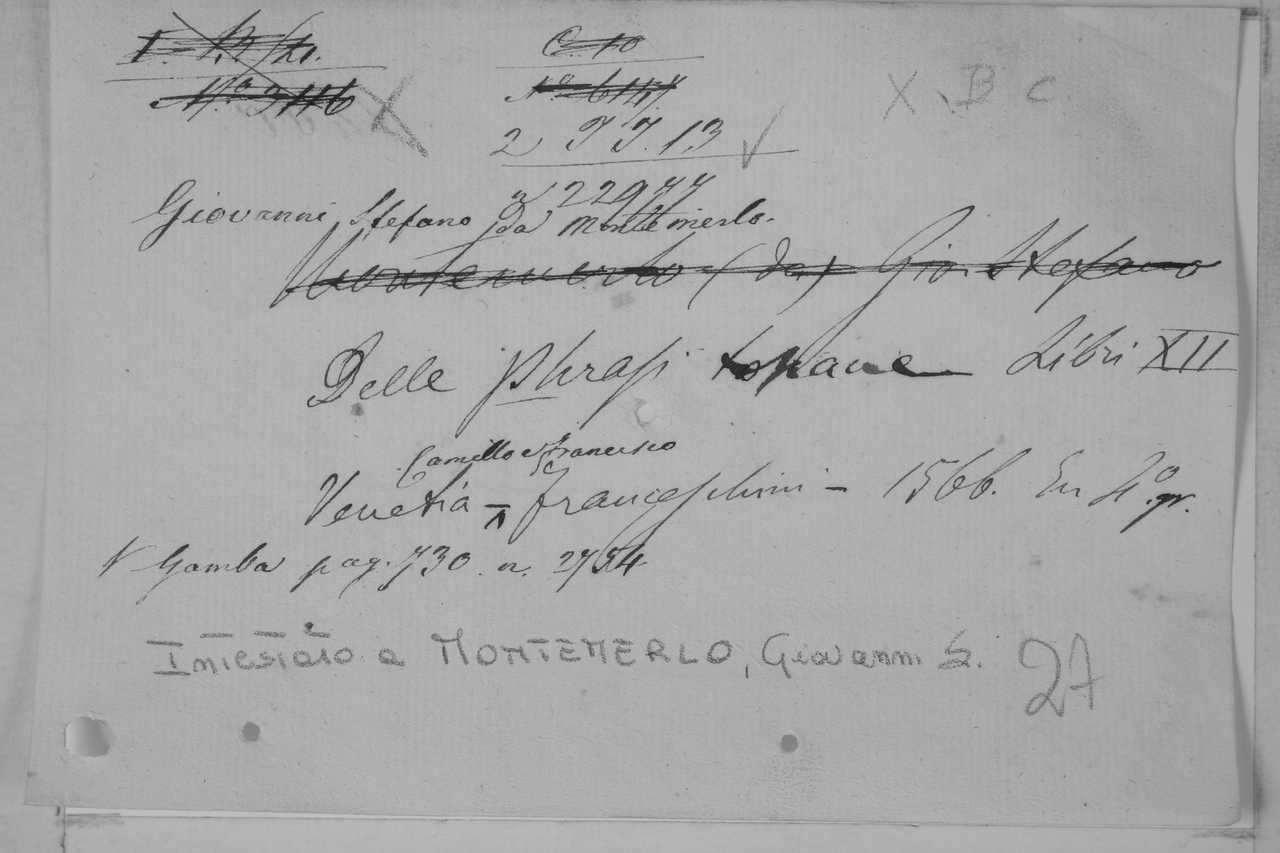 C. 10
N.º 3116
N.º 6147
X B C.
2 TT. 13 ✓
n 22977
Giovanni Stefano da Montemerlo.
Montemerlo (da) Gio. Stefano
Delle phrasi toscane Libri XII
Camillo e Francesco
Venetia - Franceschini - 1566. In 4º gr.
V Gamba pag. 730 n. 2754
Intestato a MONTEMERLO, Giovanni S.
27